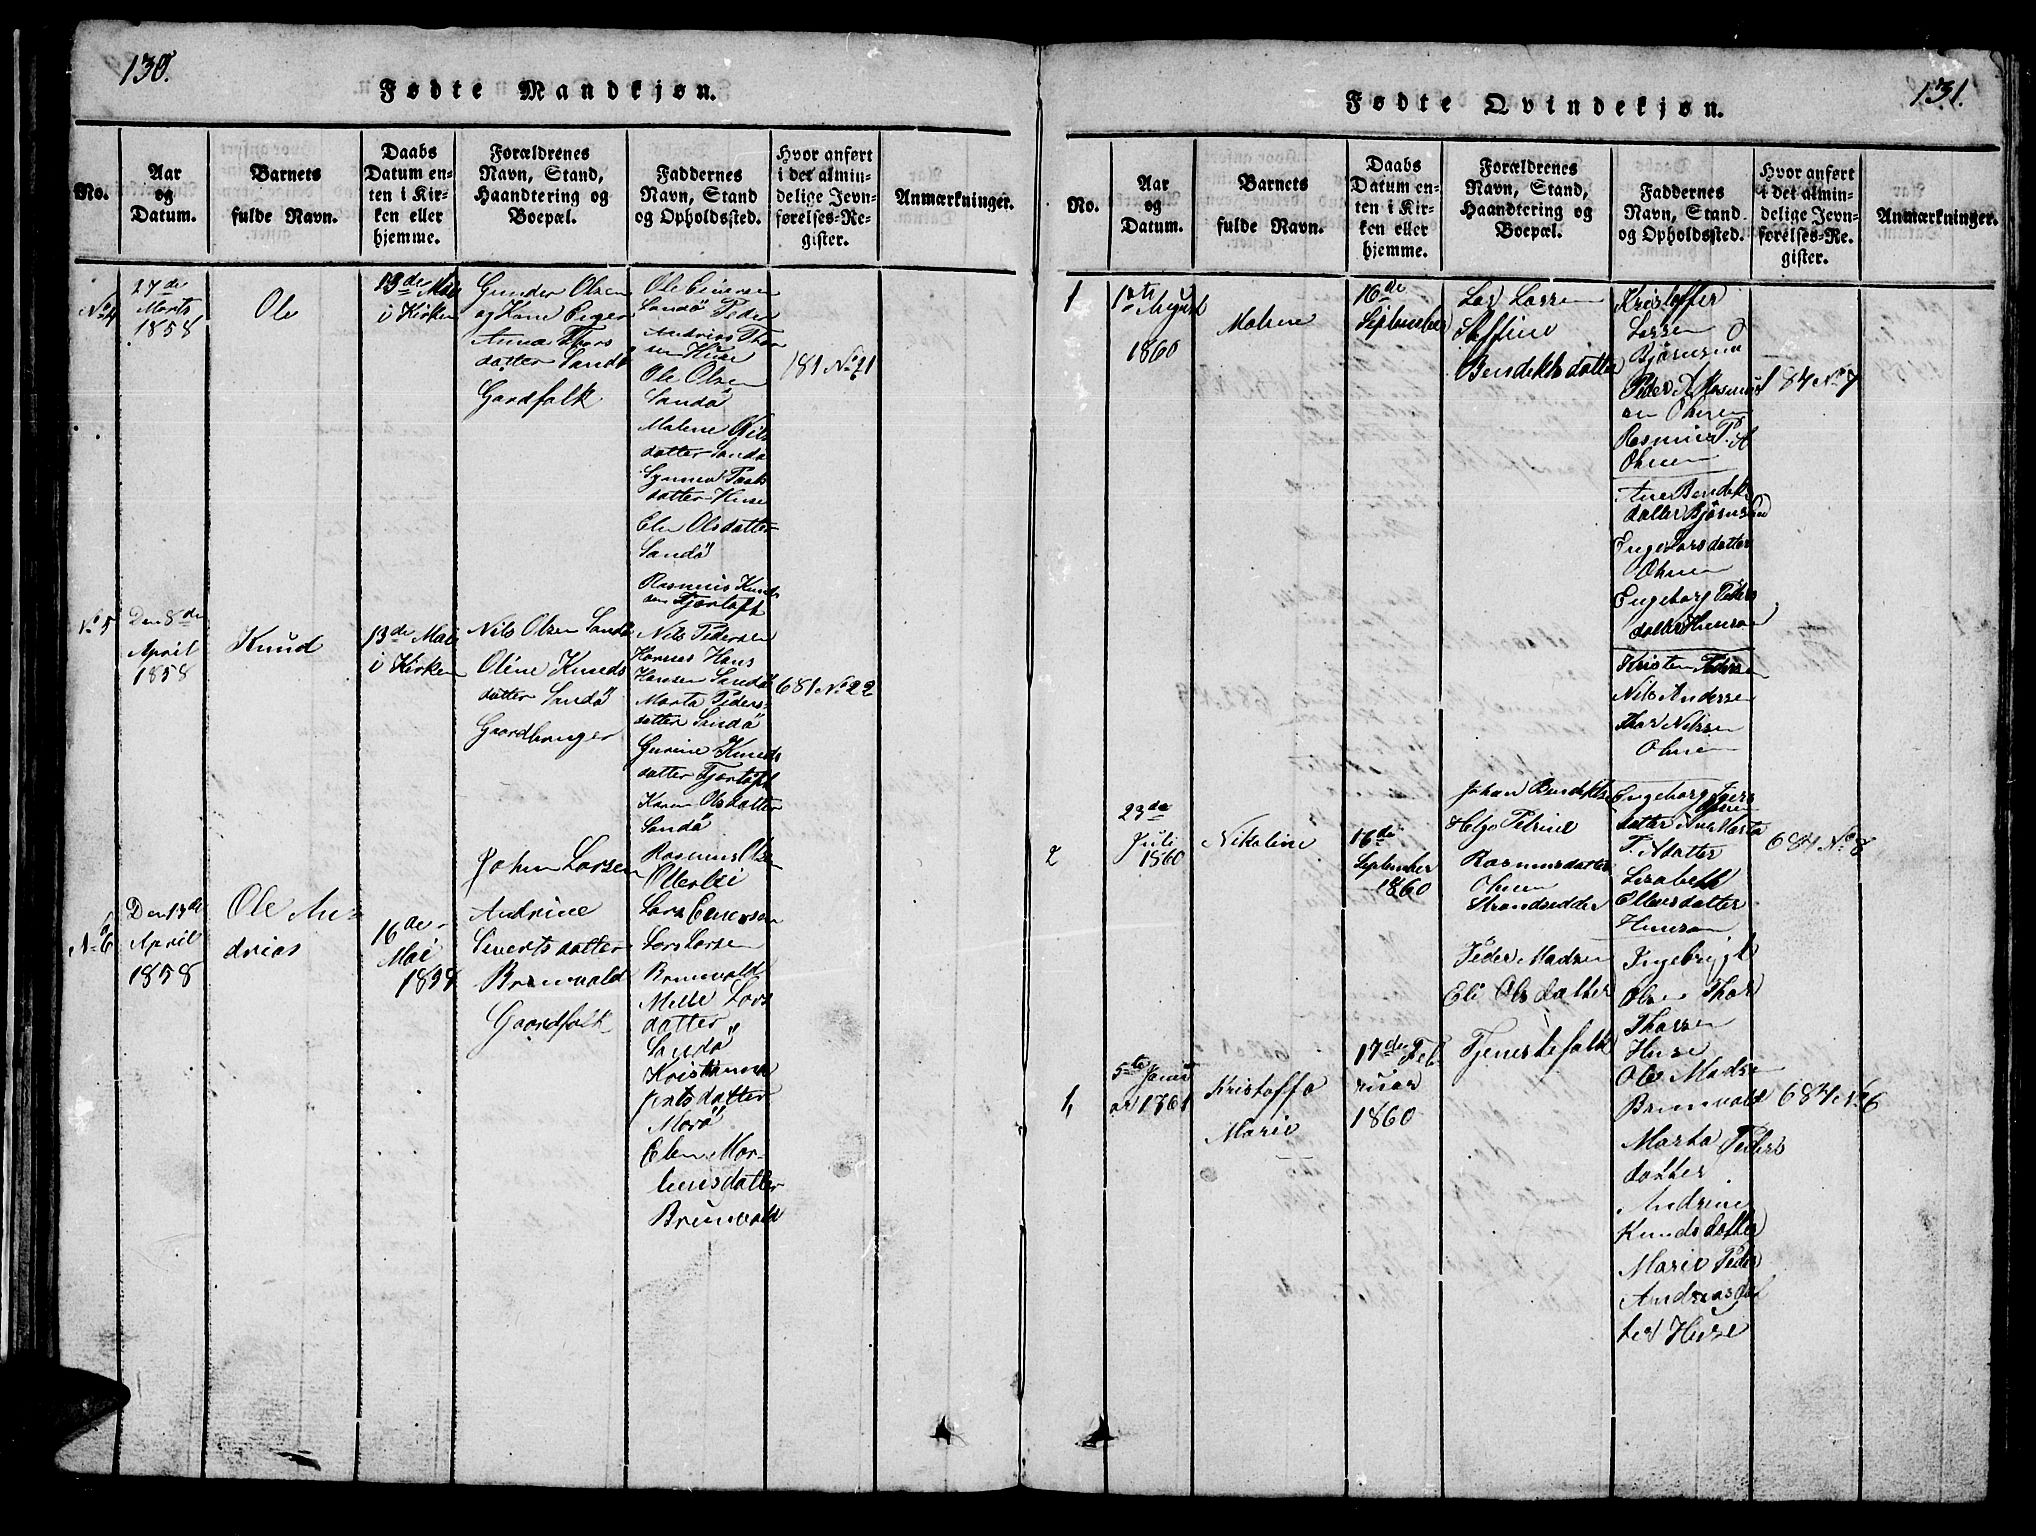 130.
Fødte Mandkjøn.
No.
Aar
og
Datum.
Barnets
fulde Navn.
Daabs
Datum en-
ten i Kir-
ken eller
hjemme.
Forældrenes
Navn, Stand,
Haandtering og
Boepæl.
Faddernes
Navn, Stand
og Opholdssted.
Hvor anført
i det almin-
delige Jevn-
førelses-Re-
gister.
Anmærkninger.
No 4
27de
Marts
1858
Ole
13de Mai
i Kirken
Gunder Olsen
og Kone
Anna Thors
datter Sandö
Gaardfolk
Ole Eiversen
Sandö Peder
Andrias Thor
sen Huse
Ole Olsen
Sandö
Malene
datter Sandö
datter Huse
Elen Olsdatter
Sandö
Rasmus Knud
sen Fjørtoft
181 No 21
No 5
Den 8de
April
1858
Knud
13de Mai
i Kirken
Nils Olsen Sandö
Oline Knuds
datter Sandö
Gaardbruger
Nils Pedersen
Harnes Hans
Hansen Sandö
Marta Peders-
datter Sandö
Gurine Knuds
datter Fjørtoft
Karen Olsdatter
Sandö
681 No 22
No 6
Den 13de
April
1858
Ole An-
drias
16de
Mai
1858
Johan Larsen
Andrine
Siverts datter
Brunvald
Gaardfolk
Rasmus Olsen
Otterlei
Lars Enersen
Lars Larsen
Brunvald
Lars
datter
Sandö
datter
Morö
Elen Mor-
tensdatter
Brunvald
131.
Fødte Qvindekjøn.
No.
Aar
og
Datum.
Barnets
fulde Navn.
Daabs
Datum en-
ten i Kir-
ken eller
hjemme.
Forældrenes
Navn, Stand,
Haandtering og
Boepæl.
Faddernes
Navn, Stand
og Opholdssted.
Hvor anført
i det almin-
delige Jevn-
førelses-Re-
gister.
Anmærkninger.
1
1ste August
1860
Malene
16de
September
Lars Larsen
Steffine
Bendiktsdatter
Kristoffer
Larsen
Björnsund
Peder A Rasmus
sen Ohnen
Rasmus P. A
Ohnen
Ane Bendikts
datter Björnsund
Inge Larsdatter
Ohnen
Engeborg Peders
datter
84 No 7
Kristen
Nils Andersen
Thor Nilssen
Ohnen
2
23de
Juli
1860
Nikoline
16de
September
1860
Johan Bendiktsen
Petrine
Rasmusdatter
Ohnen
Strandsidder
Engeborg
datter Ane Marta
Lisabeth
Ellensdatter
684 No 8
1,
5te Janu
ar 1861
Kristoffa
Marie
17de Feb
ruar
1860
Peder Madsen
Eli Olsdatter
Tjenestefolk
Ingebrigt
Olsen Thor
Thorsen
Huse
Ole Madsen
Brunvald
Marta Peders
datter
Andrine
Knudsdatter
Marie Peder
Andreasdat
ter Huse
684 No 6